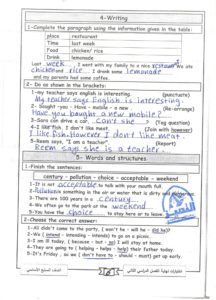 4-Writing
1-Complete the paragraph using the information given in the table:
place restaurant
Time last week
Food chicken/ rice
Drink lemonade
Last week, I went with my family to a nice restaurant. We ate
chicken and rice. I drink some lemonade
and my parents had some coffee.
2- Do as shown in the brackets:
1-my teacher says english is interesting. (punctuate)
My teacher says English is interesting.
2- bought - you - Have - mobile - a new (Re-arrange)
Have you bought a new mobile?
3- Sara can drive a car. can't she? (Tag question)
4- I like fish. I don't like meat. (Join with however)
I like fish. However, I don't like meat.
5-Reem says, "I am a teacher". (Report)
Reem says she is a teacher.
5- Words and structures
1-Finish the sentences:
century - pollution - choice - acceptable - weekend
1-It is not acceptable to talk with your mouth full.
2- Pollution something in the air or water that is dirty
3-There are 100 years in a century
4-We often go to the park at the weekend
5-You have the choice to stay here or to leave.
2-Choose the correct answer:
1- Ali didn't come to the party, ( won't be - will he - did he)?
2-We ( intend - intending - intends) to go on a picnic.
3-I am ill today, ( because - but - so) I will stay at home.
4-They are going to ( helping - helps - help) their father today.
5-It's Friday, so we ( don't have to - should - must) get up early.